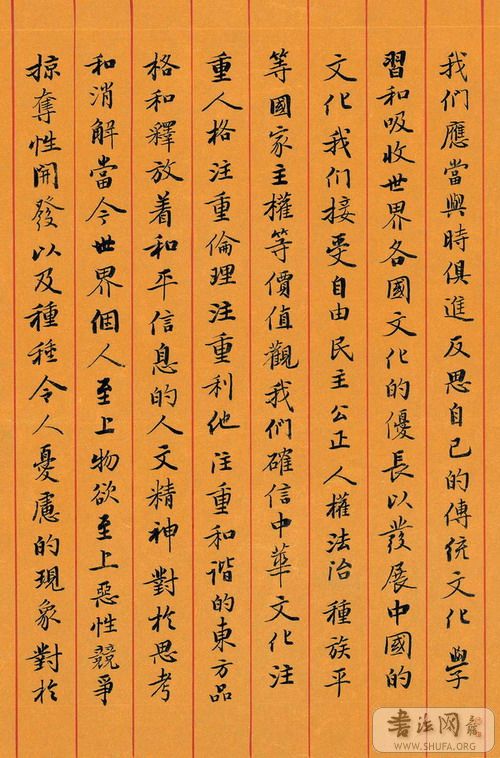 我们應當與時俱進反思自己的傳统文化學
習和吸收世界各國文化的優長以發展中國的
文化我们接受自由民主公正人權法治種族平
等國家主權等價值觀我们確信中華文化注
重人格注重倫理注重利他注重和谐的東方品
格和釋放着和平信息的人文精神對於思考
和消解當今世界個人至上物欲至上惡性競爭
掠奪性開發以及種種令人憂慮的現象對於
書法网
WWW.SHUFA.ORG